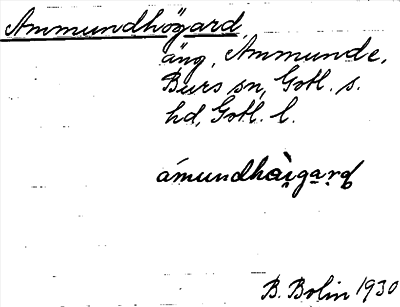 Ammundhögard,
äng, Ammunde,
Burs sn, Gotl. s.
hd, Gotl. l.
ámundhài̯gard
B. Bolin 1930